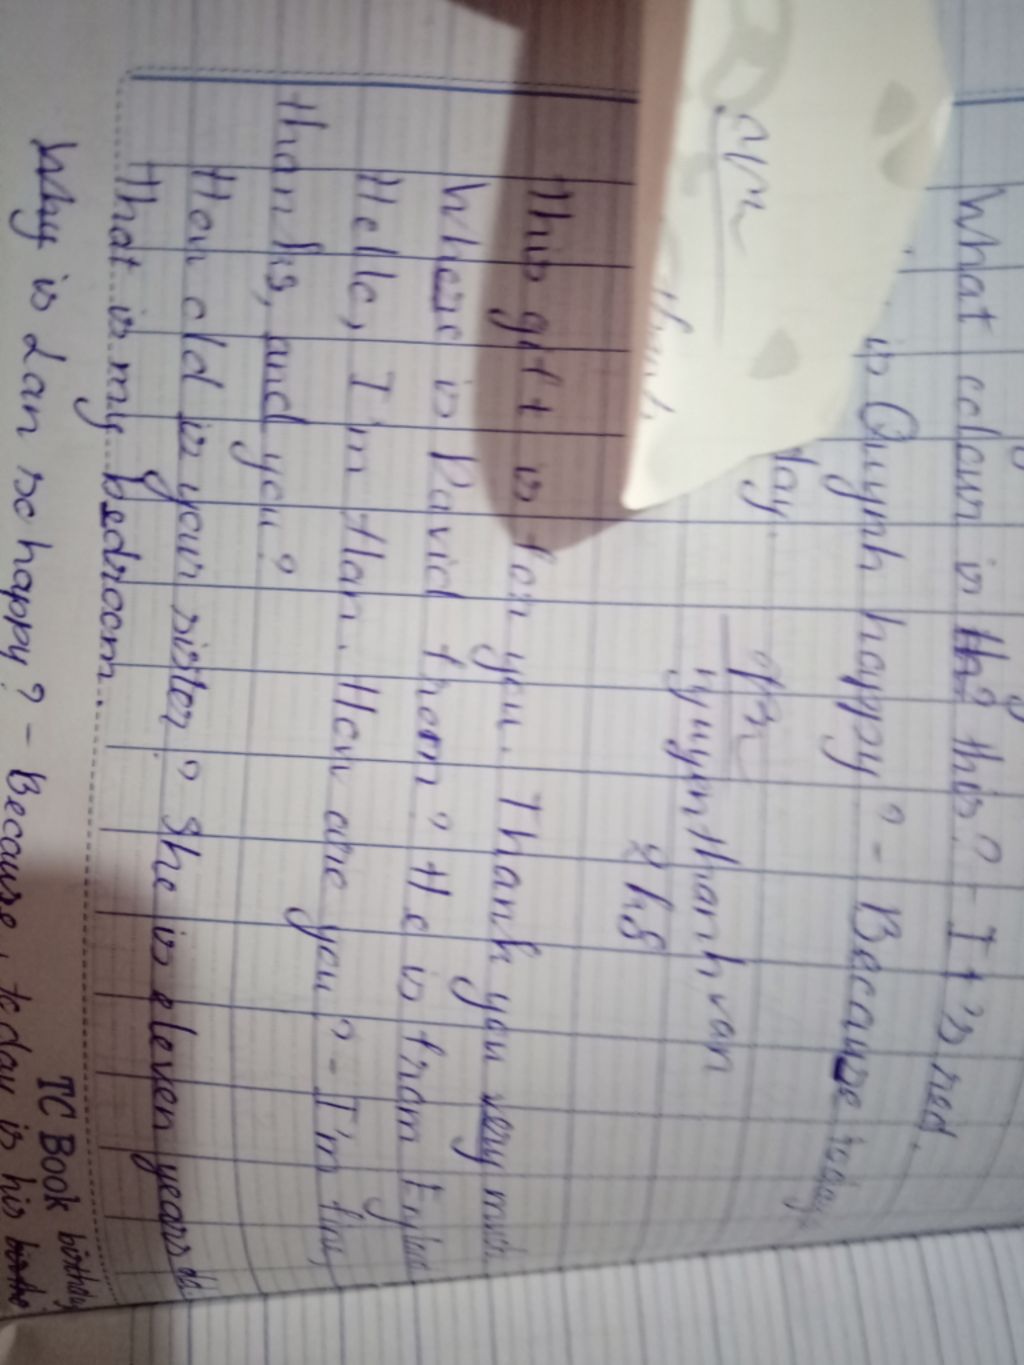 What colour is this? - It's red.
is Quynh happy? - Because
day.
thank
nguyen thanh van
8h8
This gift is for you. Thank you very much
Where is David from? He is from Englan
Hello, I'm Han. How are you? - I'm fine,
thanks, and you?
How old is your sister? She is eleven years old
That is my bedroom.
TC Book
birthday
Why is Lan so happy? - Because, today is his